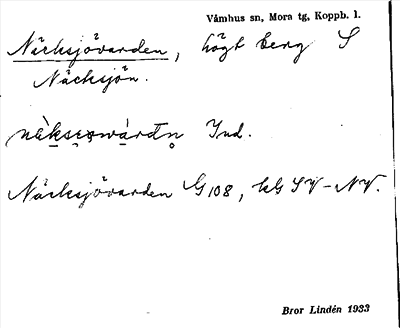 Våmhus sn, Mora tg, Koppb. l.
Näcksjövarden, högt berg S
Näcksjön.
Ind.
Näcksjövarden G 108, bG SV-NV.
Bror Lindén 1933